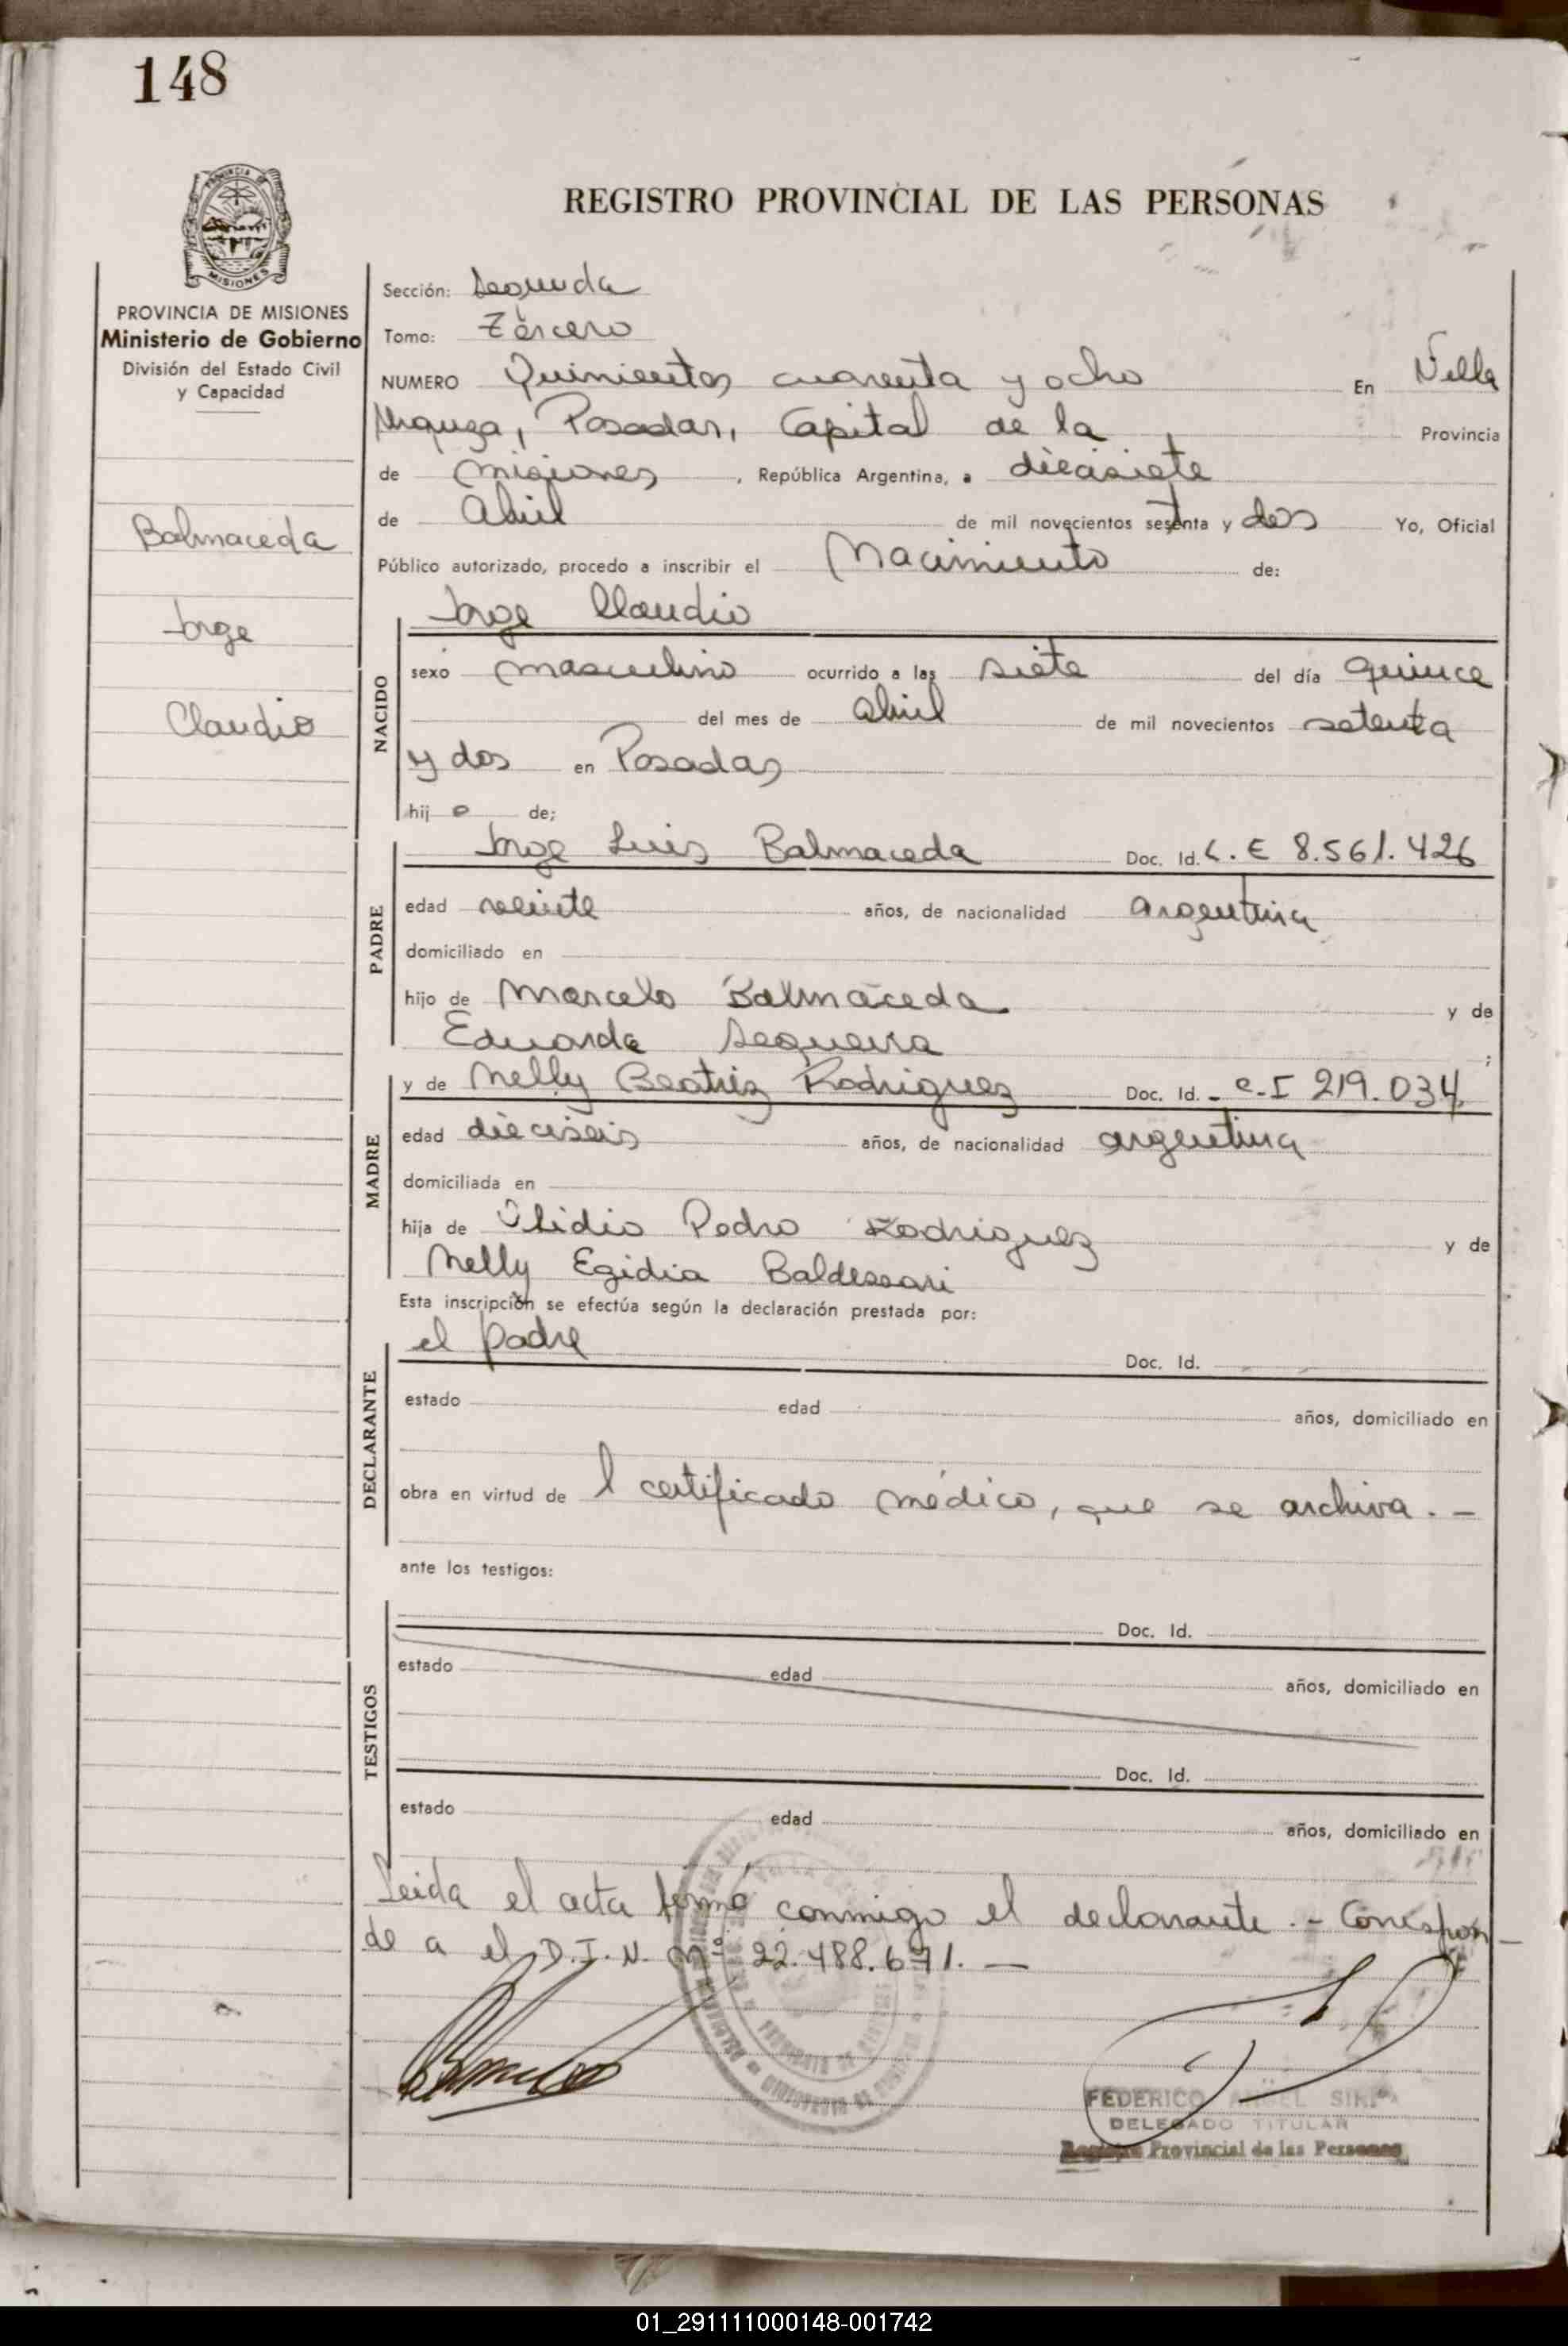 148
PROVINCIA DE
MISIONES
REGISTRO PROVINCIAL DE LAS PERSONAS
PROVINCIA DE MISIONES
Ministerio de Gobierno
División del Estado Civil
y Capacidad
Balmaceda
Jorge
Claudio
Sección: Segunda
Tomo: Tercero
NUMERO Quinientos cuarenta y ocho En Villa
Urquiza, Posadas, Capital de la Provincia
de Misiones, República Argentina, a diecisiete
de Abril de mil novecientos setenta y dos Yo, Oficial
Público autorizado, procedo a inscribir el Nacimiento de:
NACIDO
Jorge Claudio
sexo masculino ocurrido a las siete del día quince
del mes de abril de mil novecientos setenta
y dos en Posadas
hijo de;
PADRE
Jorge Luis Balmaceda Doc. Id. L.E 8.561.426
edad veinte años, de nacionalidad argentina
domiciliado en
hijo de Marcelo Balmaceda y de
Eduarda Sequeira ;
MADRE
y de Nelly Beatriz Rodriguez Doc. Id. - C.I 219.034
edad dieciseis años, de nacionalidad argentina
domiciliada en
hija de Olidio Pedro Rodriguez y de
Nelly Egidia Baldessari
Esta inscripción se efectúa según la declaración prestada por:
DECLARANTE
el padre Doc. Id.
estado edad años, domiciliado en
obra en virtud de l certificado médico, que se archiva.-
ante los testigos:
TESTIGOS
Doc. Id.
estado edad años, domiciliado en
Doc. Id.
estado edad años, domiciliado en
Leida el acta firmó conmigo el declarante.- Correspon
de a el D.I.N. Nº 22.488.671.—
FEDERICO ANGEL
DELEGADO TITULAR
Registro Provincial de las Personas
01_291111000148-001742